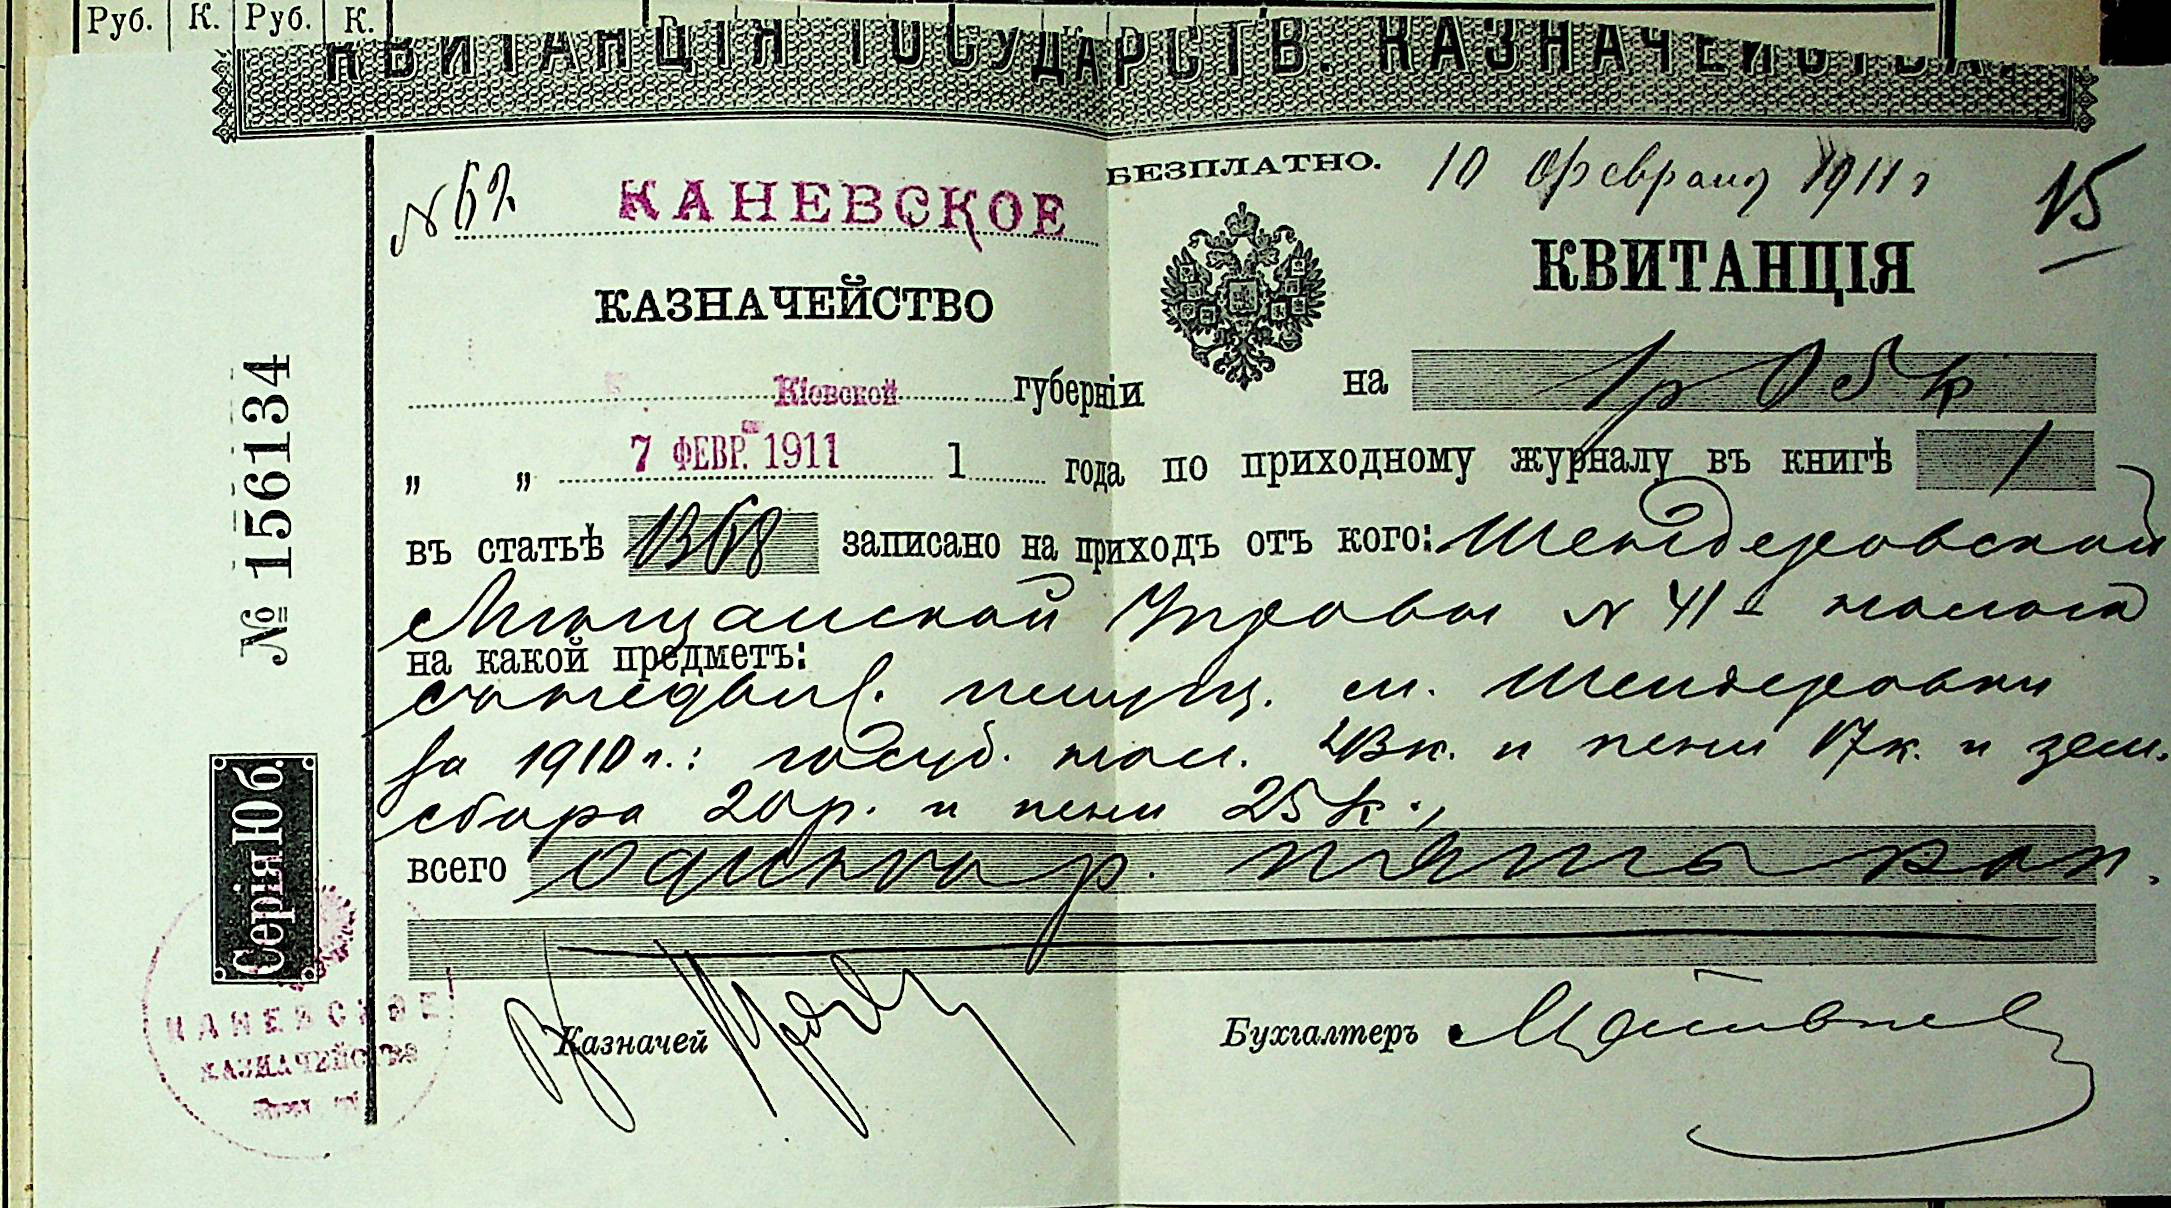 Руб. К. Руб. К.
КВИТАНЦІЯ ГОСУДАРСТВ. КАЗНАЧЕЙСТВА.
БЕЗПЛАТНО. 10 февраля 1911 г
15
№ 62 КАНЕВСКОЕ
КВИТАНЦІЯ
КАЗНАЧЕЙСТВО
Кіевской губерніи на 1 р 05 к
„ „ 7 ФЕВР. 1911 1 года по приходному журналу въ книгѣ 1
въ статьѣ 1368 записано на приходъ отъ кого: Шендеровской
Мѣщанской Управы № 41
на какой предметъ:
м. Шендеровки
за 1910 г.: госуд. 43 к. и пени 17 к. и зем.
сбора 20 р. и пени 25 к.,
всего одинъ р. пять коп.
Казначей
Бухгалтеръ
№ 156134
Серія Юб.
КАНЕВСКОЕ
КАЗНАЧЕЙСТВО